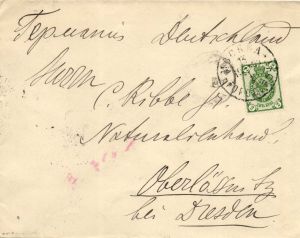 Германия Deutschland
Herrn
C. Ribbe
Naturalienhand.
Oberlößnitz
bei Dresden.